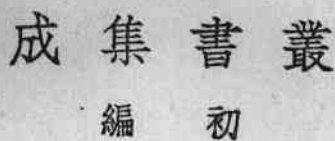 叢書集成
初編